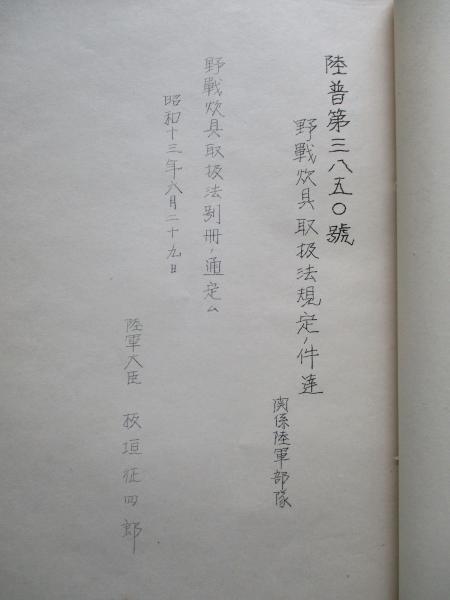 陸普第三八五〇號
野戰炊具取扱法規定ノ件達
関係陸軍部隊
野戰炊具取扱法別冊ノ通定ム
昭和十三年六月二十九日
陸軍大臣 板垣征四郎